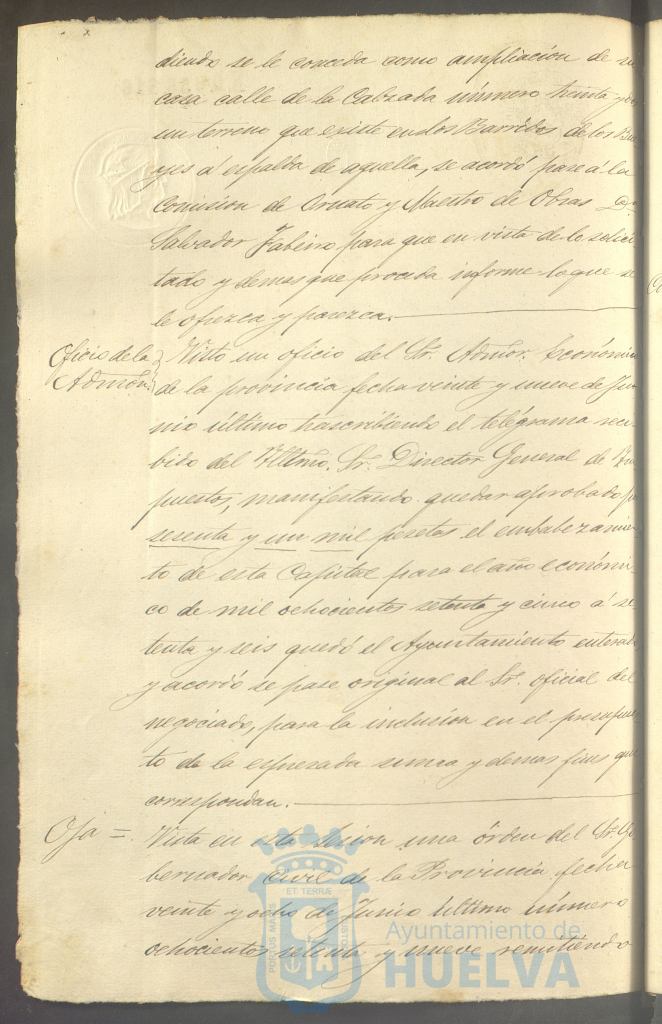 diendo se le conceda como ampliación de su
casa calle de la Calzada número treinta y dos
un terreno que existe en los Barridos de los Bue
yes á espalda de aquella, se acordó pase á la
Comision de Ornato y Maestro de Obras Dn
Salvador para que en vista de lo solici
tado y demas que proceda informe lo que se
le ofrezca y parezca.
Oficio de la
Admón.
Visto un oficio del Sr. Admor. Económico
de la provincia fecha veinte y nueve de Ju
nio último trascribiendo el telégrama reci
bido del Iltmo. Sr. Director General de Im
puestos, manifestando quedar aprobado por
sesenta y un mil pesetas el encabezamien
to de esta Capital para el año económi
co de mil ochocientos setenta y cinco á se
tenta y seis quedó el Ayuntamiento enterado
y acordó se pase original al Sr. oficial del
negociado, para la inclusión en el presupues
to de la espresada suma y demas fines que
correspondan.
Vista en esta sesion una órden del Sr. Go
bernador Civil de la Provincia fecha
veinte y ocho de Junio último número
ochocientos setenta y nueve remitiendo
PORTUS MARIS ET TERRÆ CUSTODIA
Ayuntamiento de
HUELVA